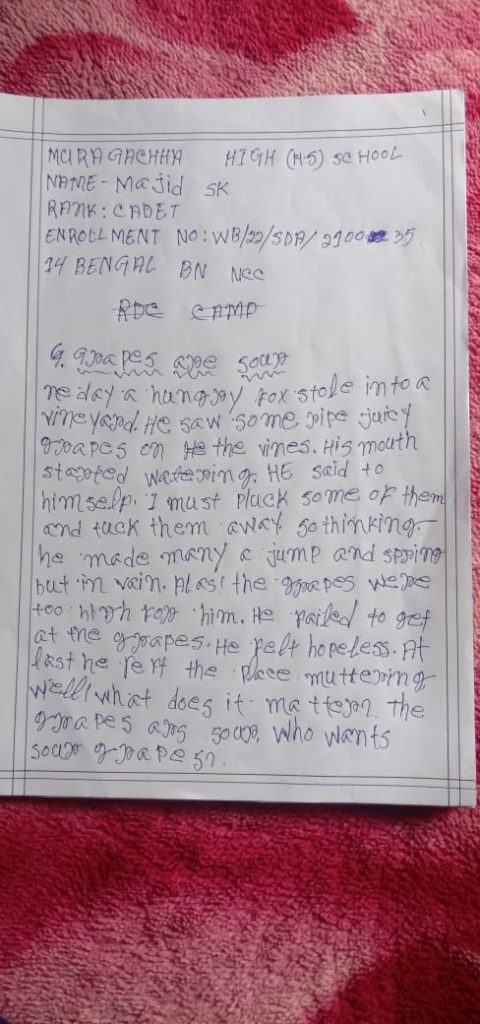 MURAGACHHA HIGH (H.S) SCHOOL
NAME - Majid SK
RANK : CADET
ENROLLMENT NO : WB/22/SDA/ 2100 35
14 BENGAL BN NCC
RDC CAMP
9. grapes are sour
ne day a hungry fox stole into a
vineyard. He saw some ripe juicy
grapes on He the vines. His mouth
started watering. HE said to
himself. I must pluck some of them
and tuck them away so thinking
he made many a jump and spring
but in vain. Alas! the grapes were
too high for him. He failed to get
at the grapes. He felt hopeless. At
last he left the place muttering
well! what does it matter. the
grapes are sour. Who wants
sour grapes?.